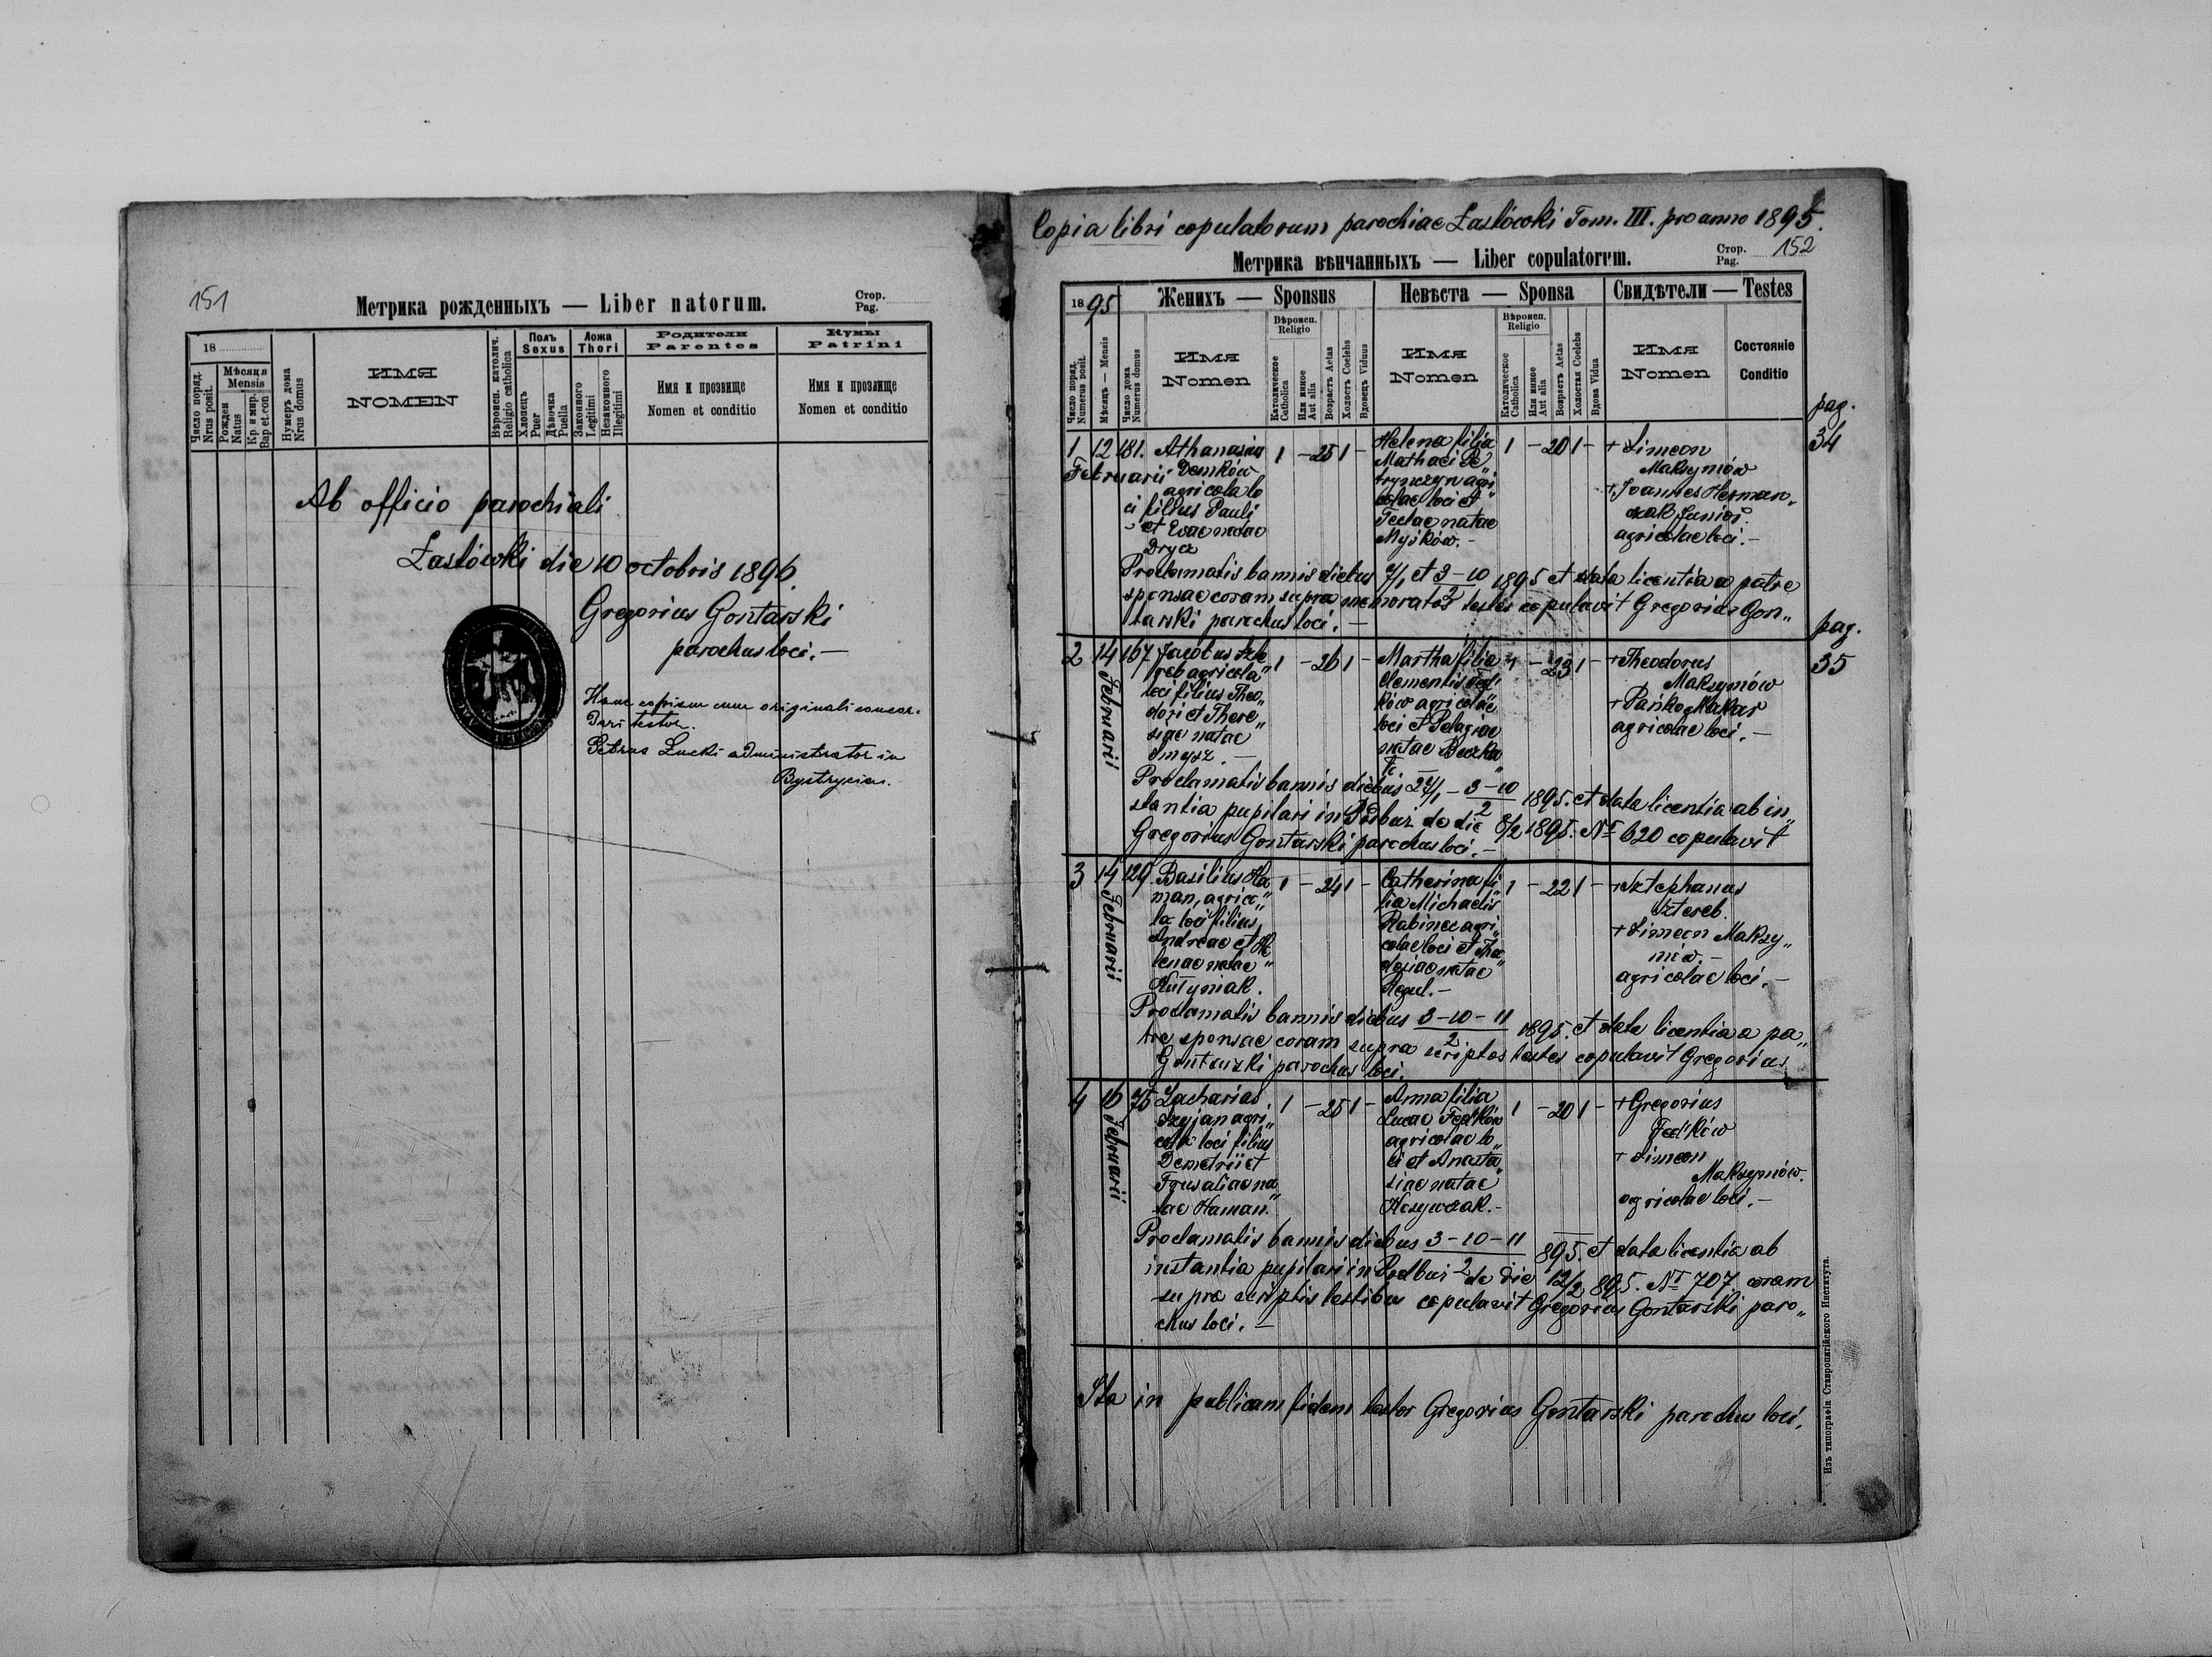 151
Метрика рожденныхъ — Liber natorum.
Стор.
Pag.
18
Число поряд.
Nrus posit.
Мѣсяця
Mensis
Рожден
Natus
Кр. и мир.
Bap et.con
Нумеръ дома
Nrus domus
ИМЯ
NOMEN
Вѣроисп. католич.
Religio catholica
Полъ
Sexus
Хлопець
Puer
Дѣвочка
Puella
Ложа
Thori
Законного
Legitimi
Незаконного
Illegitimi
Родители
Parentes
Имя и прозвище
Nomen et conditio
Кумы
Patrini
Имя и прозвище
Nomen et conditio
Ab officio parochiali
Łastówki die 10 octobris 1896.
Gregorius Gontarski
parochus loci.—
Hanc copiam cum originali concor-
dari testor.
Petrus Lucki administrator in
Bystrycia.
Copia libri copulatorum parochiae Łastówki Tom. III. pro anno 1895.
Метрика вѣнчанныхъ — Liber copulatorum.
Стор.
Pag.
152
1895
Женихъ — Sponsus
Невѣста — Sponsa
Свидѣтели — Testes
Число поряд.
Numerus posit.
Мѣсяцъ — Mensis
Число дома
Numerus domus
Имя
Nomen
Вѣроисп.
Religio
Католическое
Catholica
Или инное
Aut alia
Возрастъ Aetas
Холостъ Coelebs
Вдовецъ Viduus
Имя
Nomen
Вѣроисп.
Religio
Католическое
Catholica
Или инное
Aut alia
Возрастъ Aetas
Холостая Coelebs
Вдова Vidua
Имя
Nomen
Состояніе
Conditio
pag.
34
1 12 181.
Februarii
Athanasius
Demków
agricola lo
ci filius Pauli
et Evae natae
Drycz
1 – 25 1 –
Helena filia
Mathaei Pe„
trynczyn agri„
colae loci et
Teclae natae
Myśków.–
1 – 20 1 –
+ Simeon
Maksymów
+ Joannes Herman„
czak Junior.
agricolae loci.–
Proclamatis bannis diebus et 3–10/2 1895 et data licentia a patre
sponsae coram supra memoratos testes copulavit Gregorius Gon„
tarski parochus loci.—
pag.
35
2 14 167
Februarii
Jacobus Szte
reb agricola
loci filius Theo„
dori et There„
siae natae
Smysz.—
1 – 26 1 –
Martha filia
Clementis Fed'
ków agricolae
loci et Pelagiae
natae Beczka„
1 – 23 1 –
+ Theodorus
Maksymów
+ Pańko Makar
agricolae loci.–
Proclamatis bannis diebus 27/1 – 3–10/2 1895. et data licentia ab in„
stantia pupilari in Podbuż de die 8/2 1895. № 620 copulavit
Gregorius Gontarski parochus loci.–
3 14 129
Februarii
Basilius Ha„
man, agrico„
la loci filius
Andreae et He
lenae natae
Hutyniak.
1 – 24 1 –
Catherina fi„
lia Michaelis
Rabinec agri„
colae loci et The„
dosiae natae
Regul.–
1 – 22 1 –
+ Sztephanus
Sztereb.
+ Simeon Maksy„
mów.–
agricolae loci.–
Proclamatis bannis diebus 3–10–11/2 1895. et data licentia a pa„
tre sponsae coram supra scriptos testes copulavit Gregorius
Gontarski parochus loci.
4 16 75
Februarii
Zacharias
Szyjan agri„
cola loci filius
Demetrii et
na
tae Haman.
1 – 25 1 –
Anna filia
Lucae Fed'ków
agricolae lo„
ci et Anasta„
siae natae
Hosywczak.–
1 – 20 1 –
+ Gregorius
Fed'ków
+ Simeon
Maksymów.
agricolae loci.–
Proclamatis bannis diebus 3–10–11/2 895. et data licentia ab
instantia pupilari in Podbuż de die 12/2 895. № 707. coram
supra scriptis testibus copulavit Gregorius Gontarski paro„
chus loci.–
Ita in publicam fidem testor Gregorius Gontarski parochus loci.
Изъ типографіи Ставропигійского Института